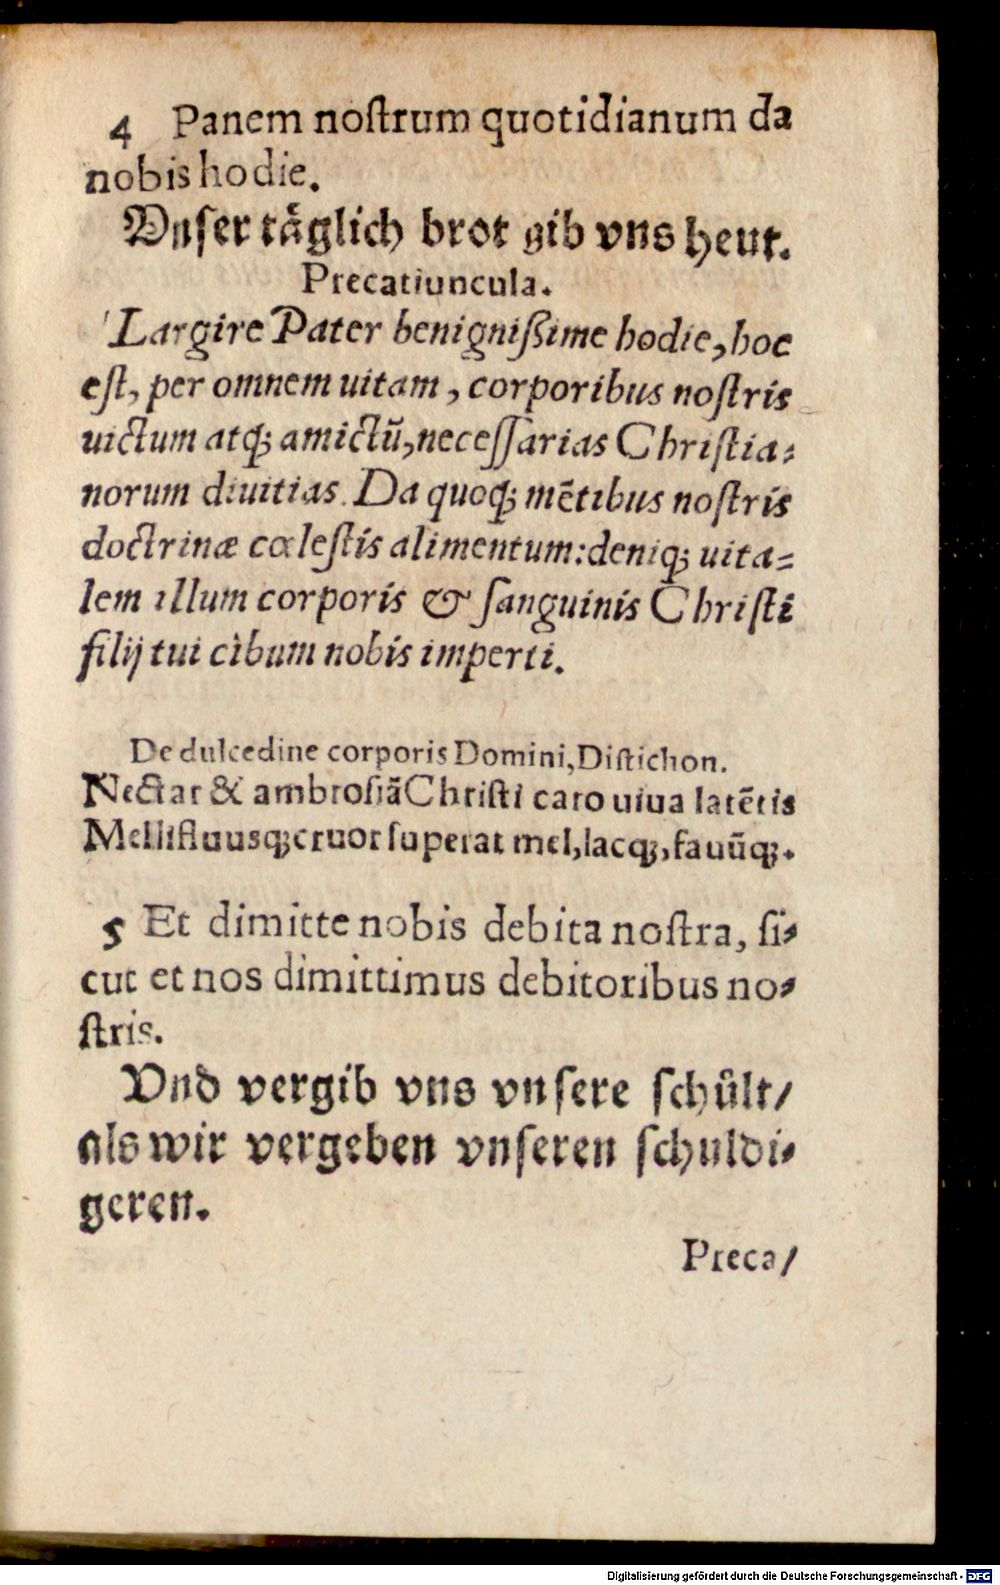 4 Panem nostrum quotidianum da
nobis hodie.
Vnser täglich brot gib vns heut.
Precatiuncula.
Largire Pater benignißime hodie, hoc
est, per omnem uitam, corporibus nostris
uictum atq; amictū, necessarias Christia-
norum diuitias. Da quoq; mētibus nostris
doctrinæ cœlestis alimentum: deniq; uita-
lem illum corporis & sanguinis Christi
filij tui cibum nobis imperti.
De dulcedine corporis Domini, Distichon.
Nectar & ambrosiā Christi caro uiua latētis
Mellifluusq; cruor superat mel, lacq;, fauūq;.
5 Et dimitte nobis debita nostra, si-
cut et nos dimittimus debitoribus no-
stris.
Vnd vergib vns vnsere schůlt/
als wir vergeben vnseren schuldi-
geren.
Preca/
Digitalisierung gefördert durch die Deutsche Forschungsgemeinschaft - DFG